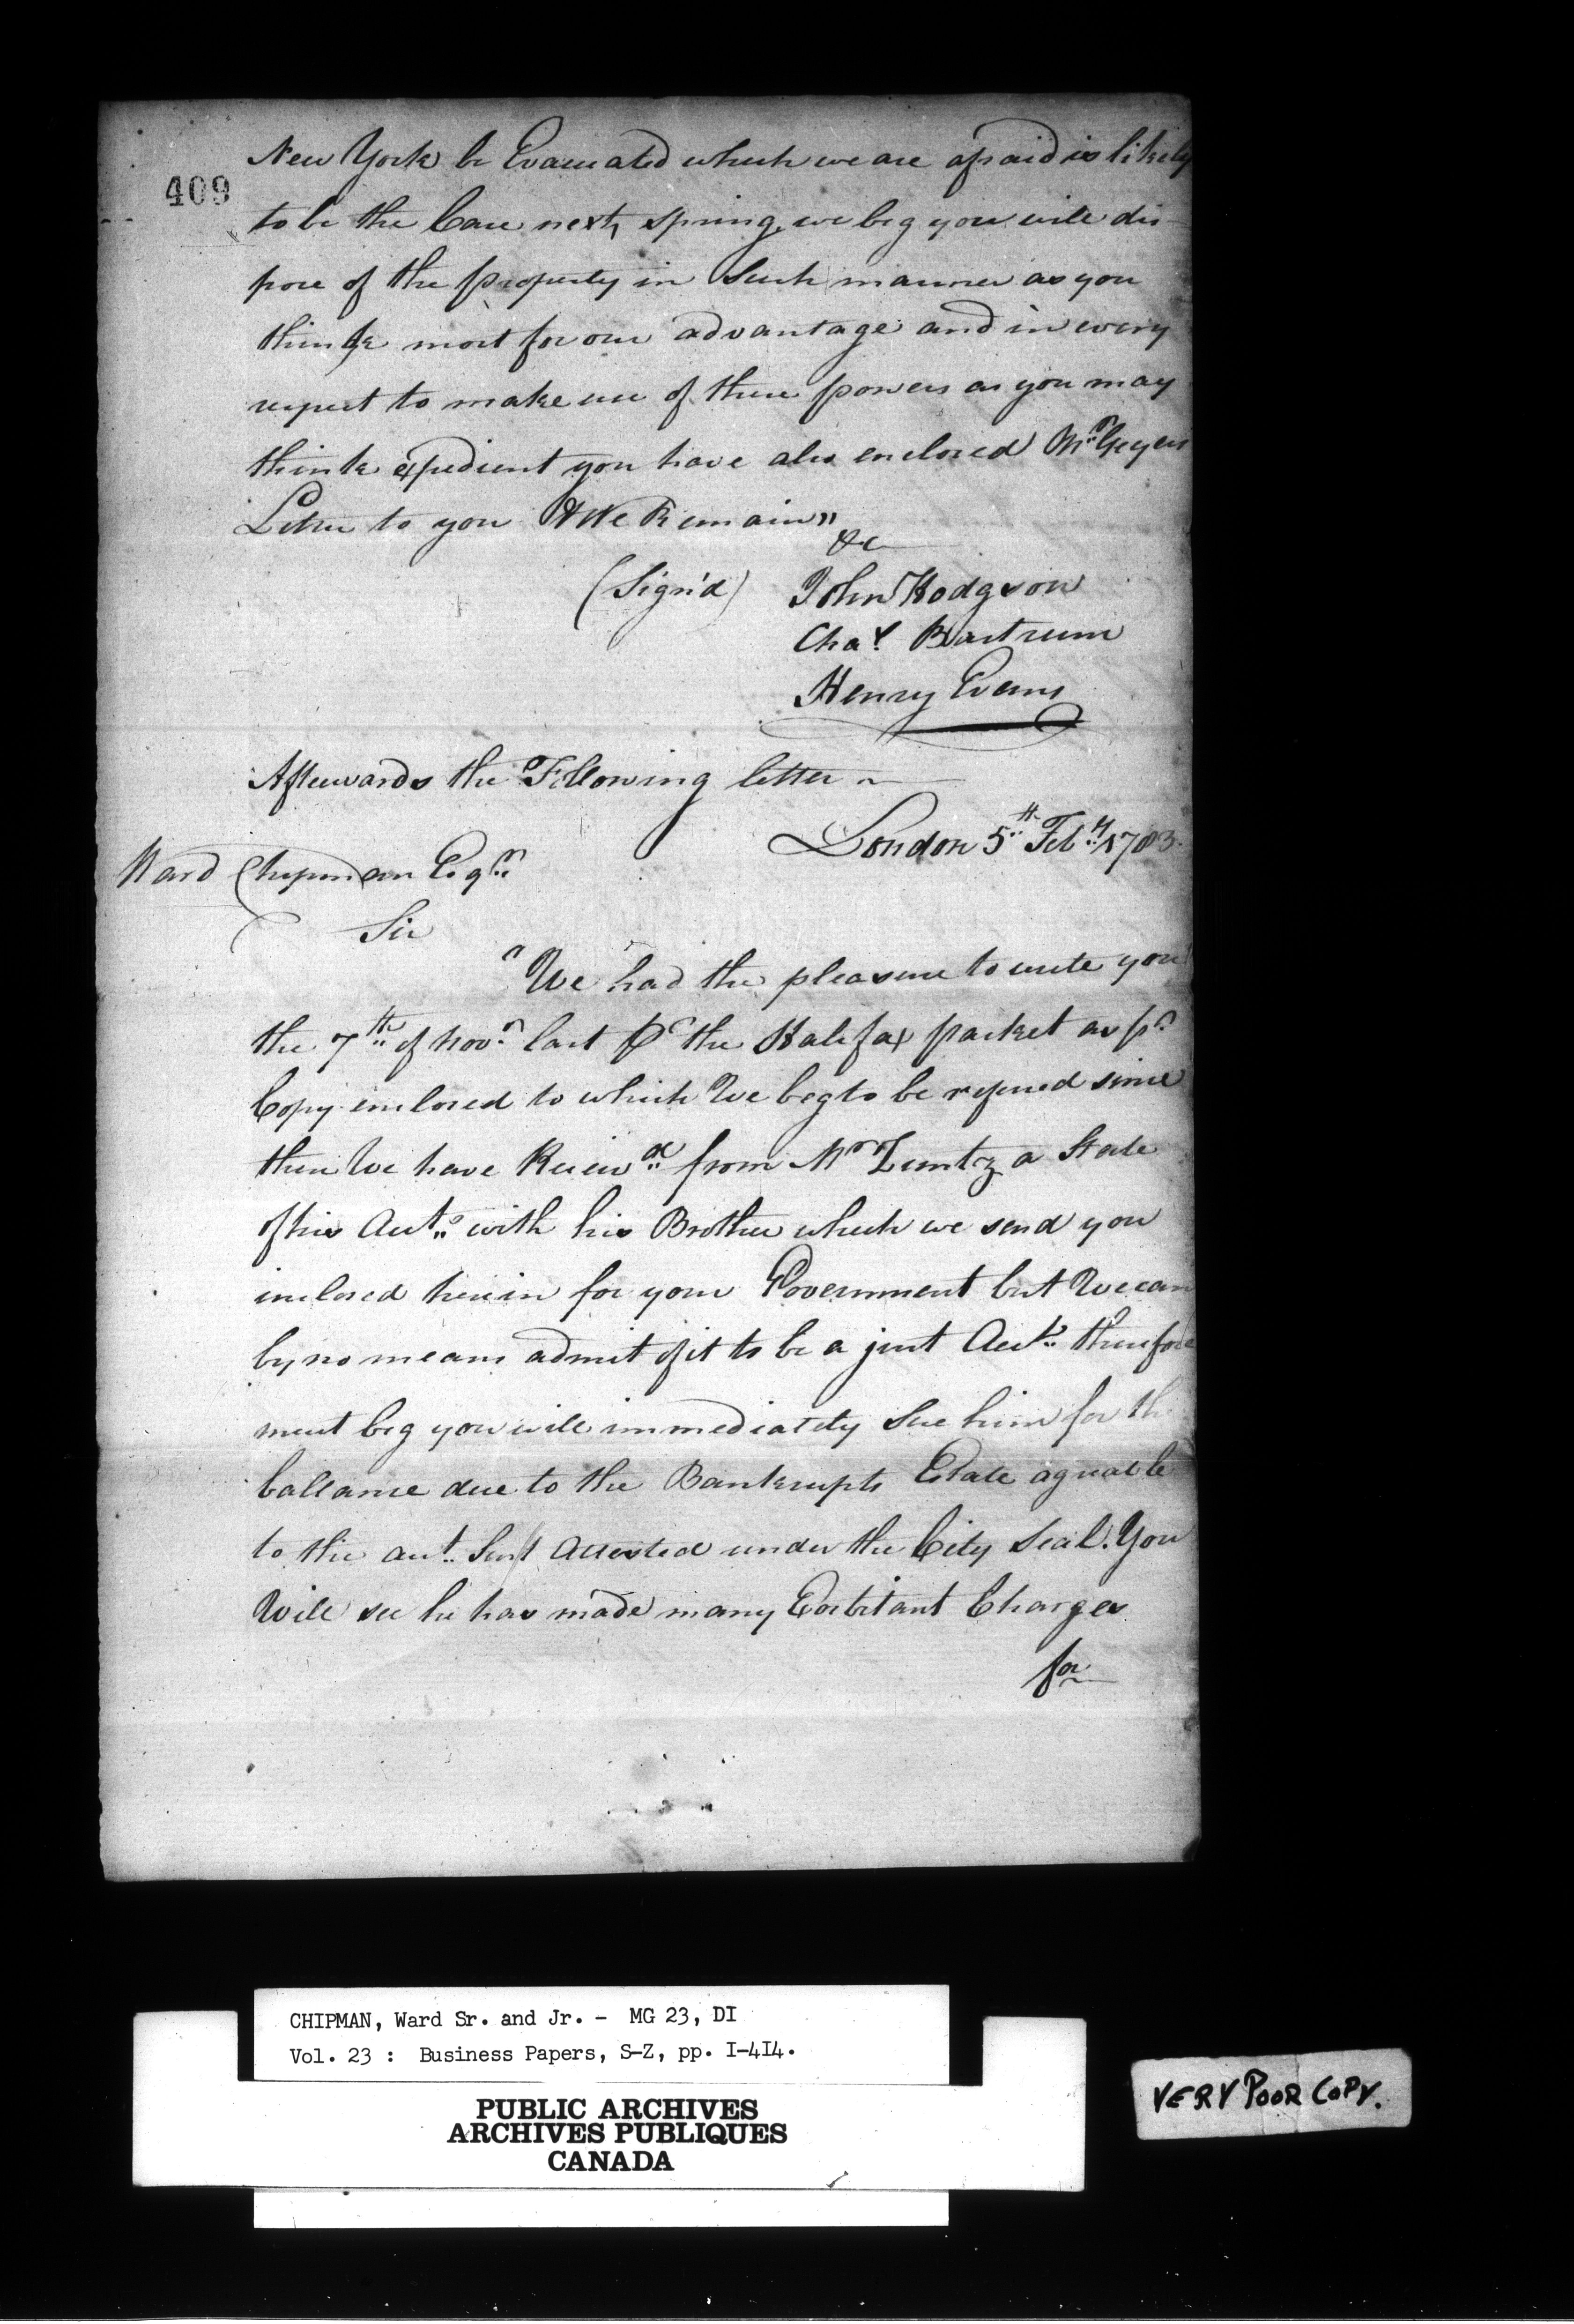 409
New York be Evacuated which we are afraid is likely
to be the Case next, spring, we beg you will dis
pose of the property in Such manner as you
think most for our advantage and in every
respect to make use of these powers as you may
think expedient you have also enclosed Mr. Geyers
Letter to you & We Remain"
&c
(Sign'd) John Hodgson
Chas. Bartrum
Henry Evans
Afterwards the Following letter ~
London 5th Feby. 1783.
Ward Chipman Esqr.
Sir
"We had the pleasure to write you
the 7th of Novr. last Pr the Halifax packet as pr
Copy enclosed to which We beg to be refered since
then We have Receivd. from Mr Zuntz a State
of his Accts. with his Brother which we send you
inclosed herein for your Government but We can
by no means admit of it to be a just Acct. therefore
must beg you will immediately Sue him for th
ballance due to the Bankrupts Estate agreable
to the acct. Sent Attested under the City Seal. You
Will see he has made many Exorbitant Charges
for
CHIPMAN, Ward Sr. and Jr. - MG 23, DI
Vol. 23 : Business Papers, S-Z, pp. I-4I4.
PUBLIC ARCHIVES
ARCHIVES PUBLIQUES
CANADA
VERY POOR COPY.